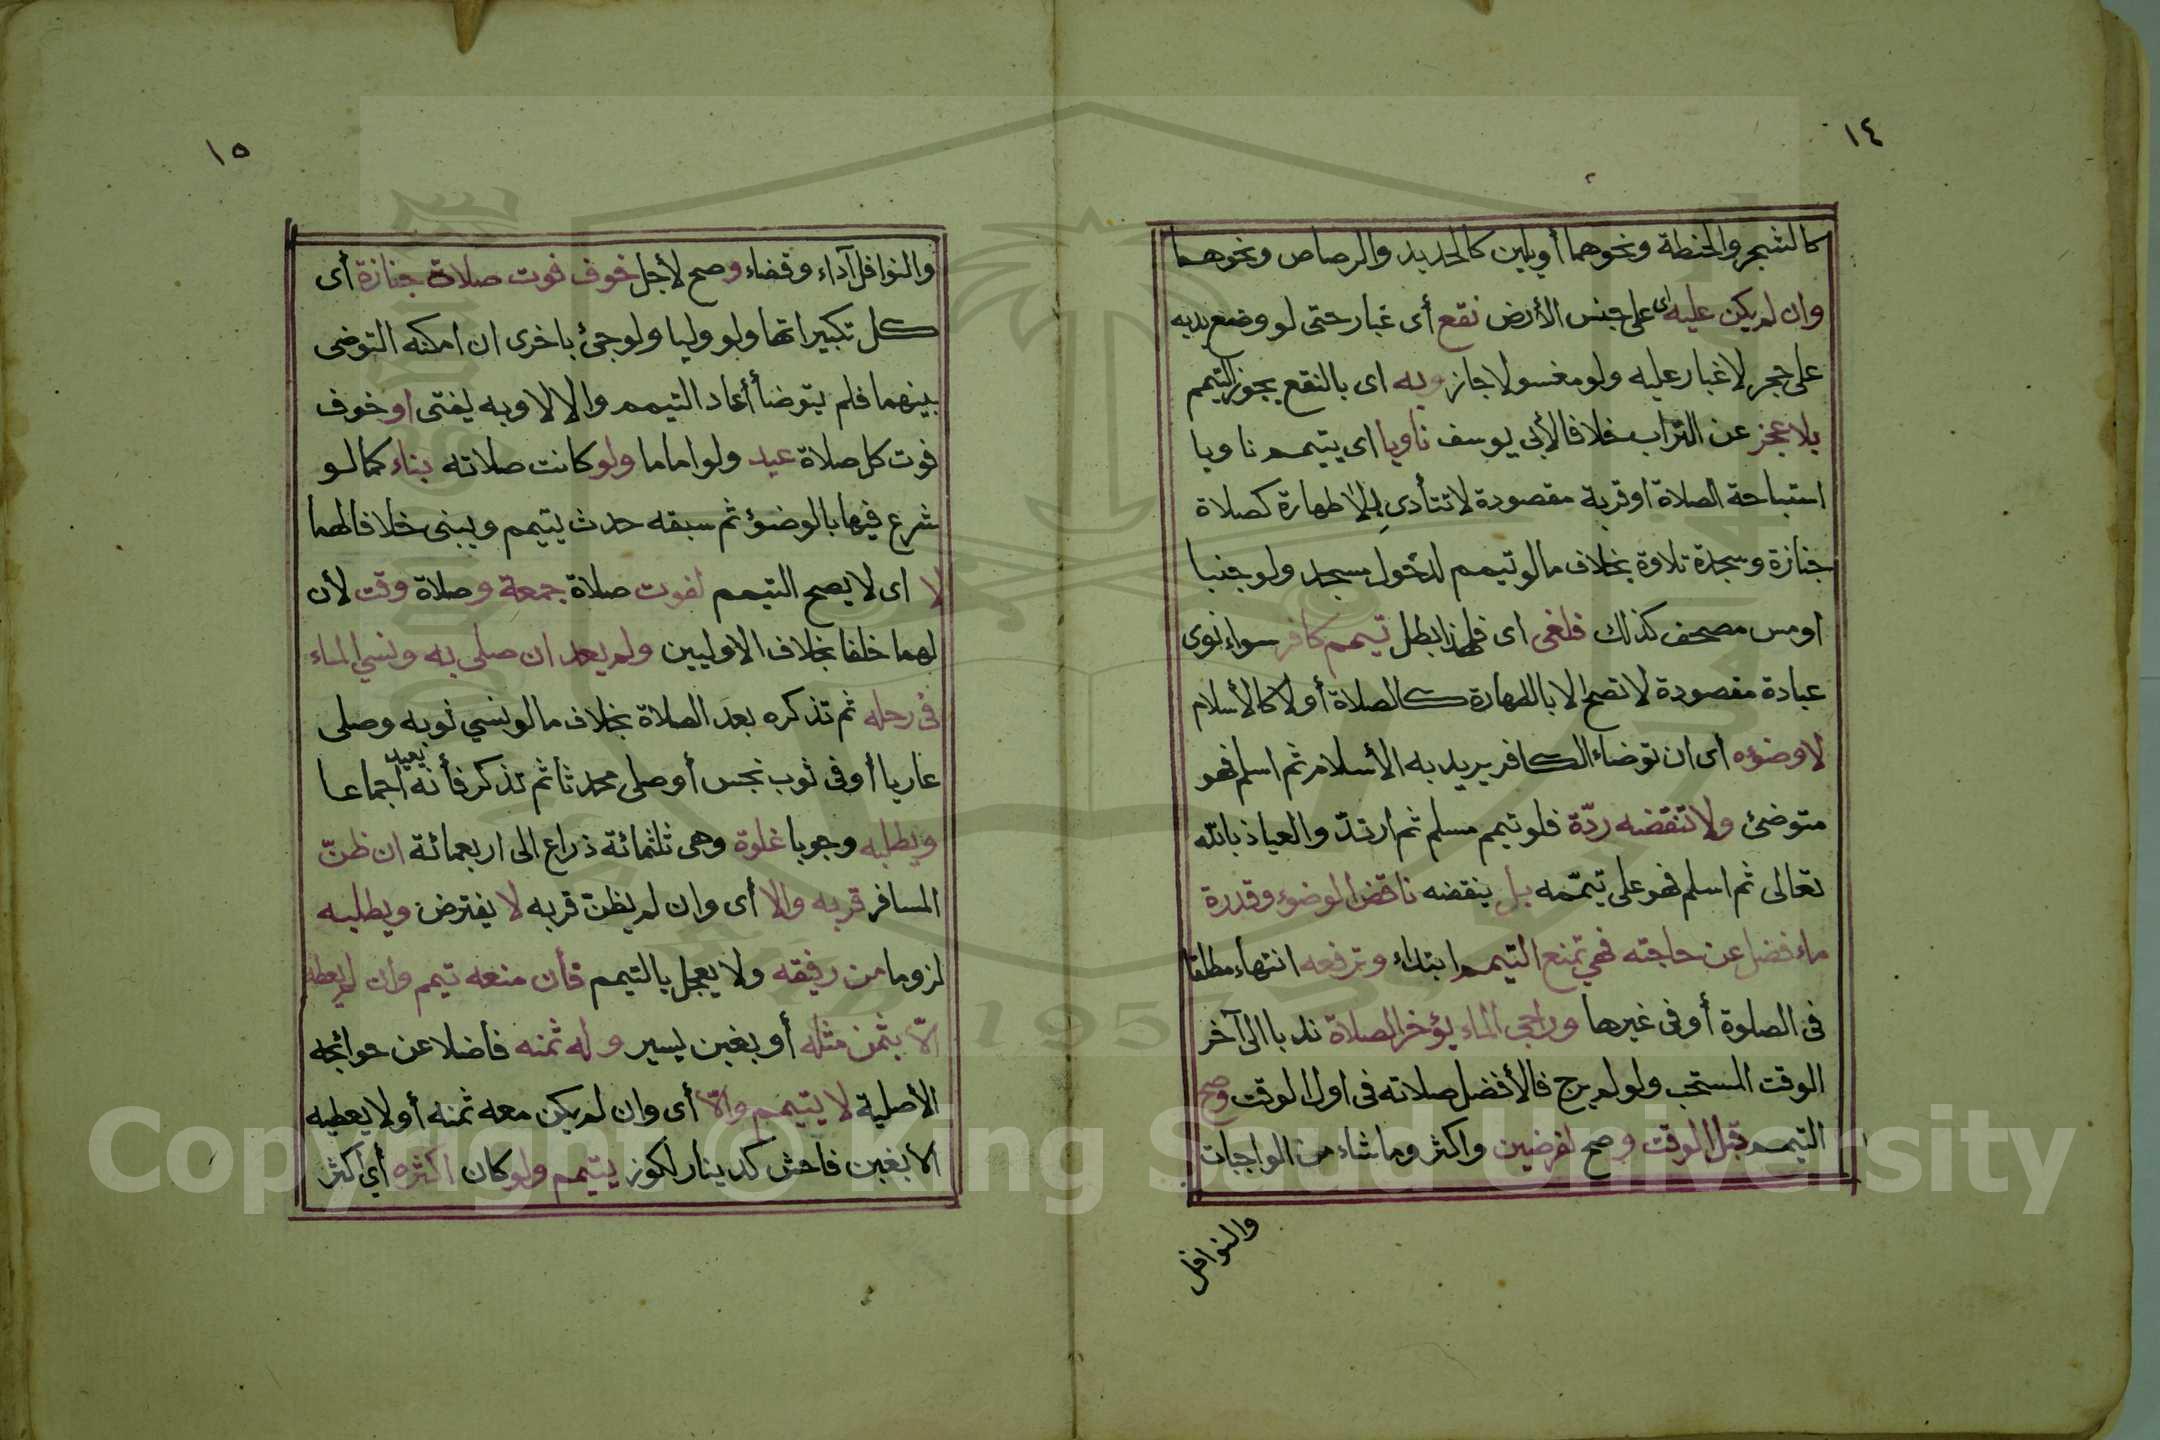 ١٤
كالشجر والحنطة ونحوهما أويلين كالحديد والرصاص ونحوهما
وان لم يكن عليه اى على جنس الأرض نقع أى غبار حتى لو وضع يديه
على حجر لا غبار عليه ولو مغسولا جاز وبه اى بالنقع يجوز التيمم
بلا عجز عن التراب خلافا لأبى يوسف ناويا اى يتيمم ناويا
استباحة الصلاة او قربة مقصودة لا تتأدى إلا لطهارة كصلاة
جنازة وسجدة تلاوة بخلاف مالو تيمم لدخول مسجد ولو جنبا
او مس مصحف كذلك فلغى اى فلهذا بطل تيمم كافر سواء نوى
عبادة مقصودة لا تصح الا بالطهارة كالصلاة أو لا كالأسلام
لا وضؤه اى ان توضاء الكافر يريد به الأسلام ثم اسلم فهو
متوضئ ولا تنقضه ردّة فلو تيمم مسلم ثم ارتدّ والعياذ بالله
تعالى ثم اسلم فهو على تيمّمه بل ينقضه ناقض الوضوء وقدرة
ماء فضل عن حاجته فهي تمنع التيمم ابتداء وترفعه انتهاء مطلقا
فى الصلوة أو فى غيرها وراجى الماء يؤخر الصلاة ندبا الى آخر
الوقت المستحب ولو لم يرج فالأفضل صلاته فى اول الوقت وصح
التيمم قبل الوقت وصح لفرضين واكثر وما شاء من الواجبات
والنوافل
١٥
والنوافل آداء وقضاء وصح لأجل خوف فوت صلاة جنازة أى
كل تكبيراتها ولو وليا ولو جئ باخرى ان امكنه التوضى
بينهما فلم يتوضأ أعاد التيمم والا لا وبه يفتى او خوف
فوت كل صلاة عيد ولو اماما ولو كانت صلاته بناء كما لو
شرع فيها بالوضؤ ثم سبقه حدث يتيمم ويبنى خلافا لهما
لا اى لا يصح التيمم لفوت صلاة جمعة وصلاة وقت لأن
لهما خلفا بخلاف الاوليين ولم يعد ان صلى به ونسي الماء
فى رحله ثم تذكره بعد الصلاة بخلاف مالو نسي ثوبه وصلى
عاريا أو فى ثوب نجس أو صلى محدثا ثم تذكر فأنه يعيد اجماعا
ويطلبه وجوبا غلوة وهى ثلثمائة ذراع الى اربعمائة ان ظنّ
المسافر قربه والا أى وان لم يظنّ قربه لا يفترض ويطلبه
لزوما من رفيقه ولا يعجل بالتيمم فأن منعه تيمم وان لم يعطه
الاّ بثمن مثله أو بغبن يسير وله ثمنه فاضلا عن حوائجه
الأصلية لا يتيمم والاّ أى وان لم يكن معه ثمنه أو لا يعطيه
الا بغبن فاحش كدينار لكوز يتيمم ولو كان اكثره أي اكثر
Copyright © King Saud University